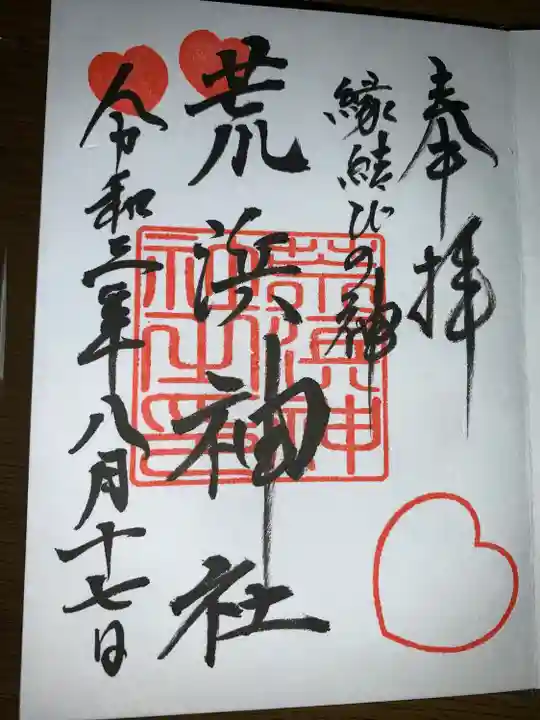 奉拝
縁結びの神
荒浜神社
荒浜神社之印
令和三年八月十七日